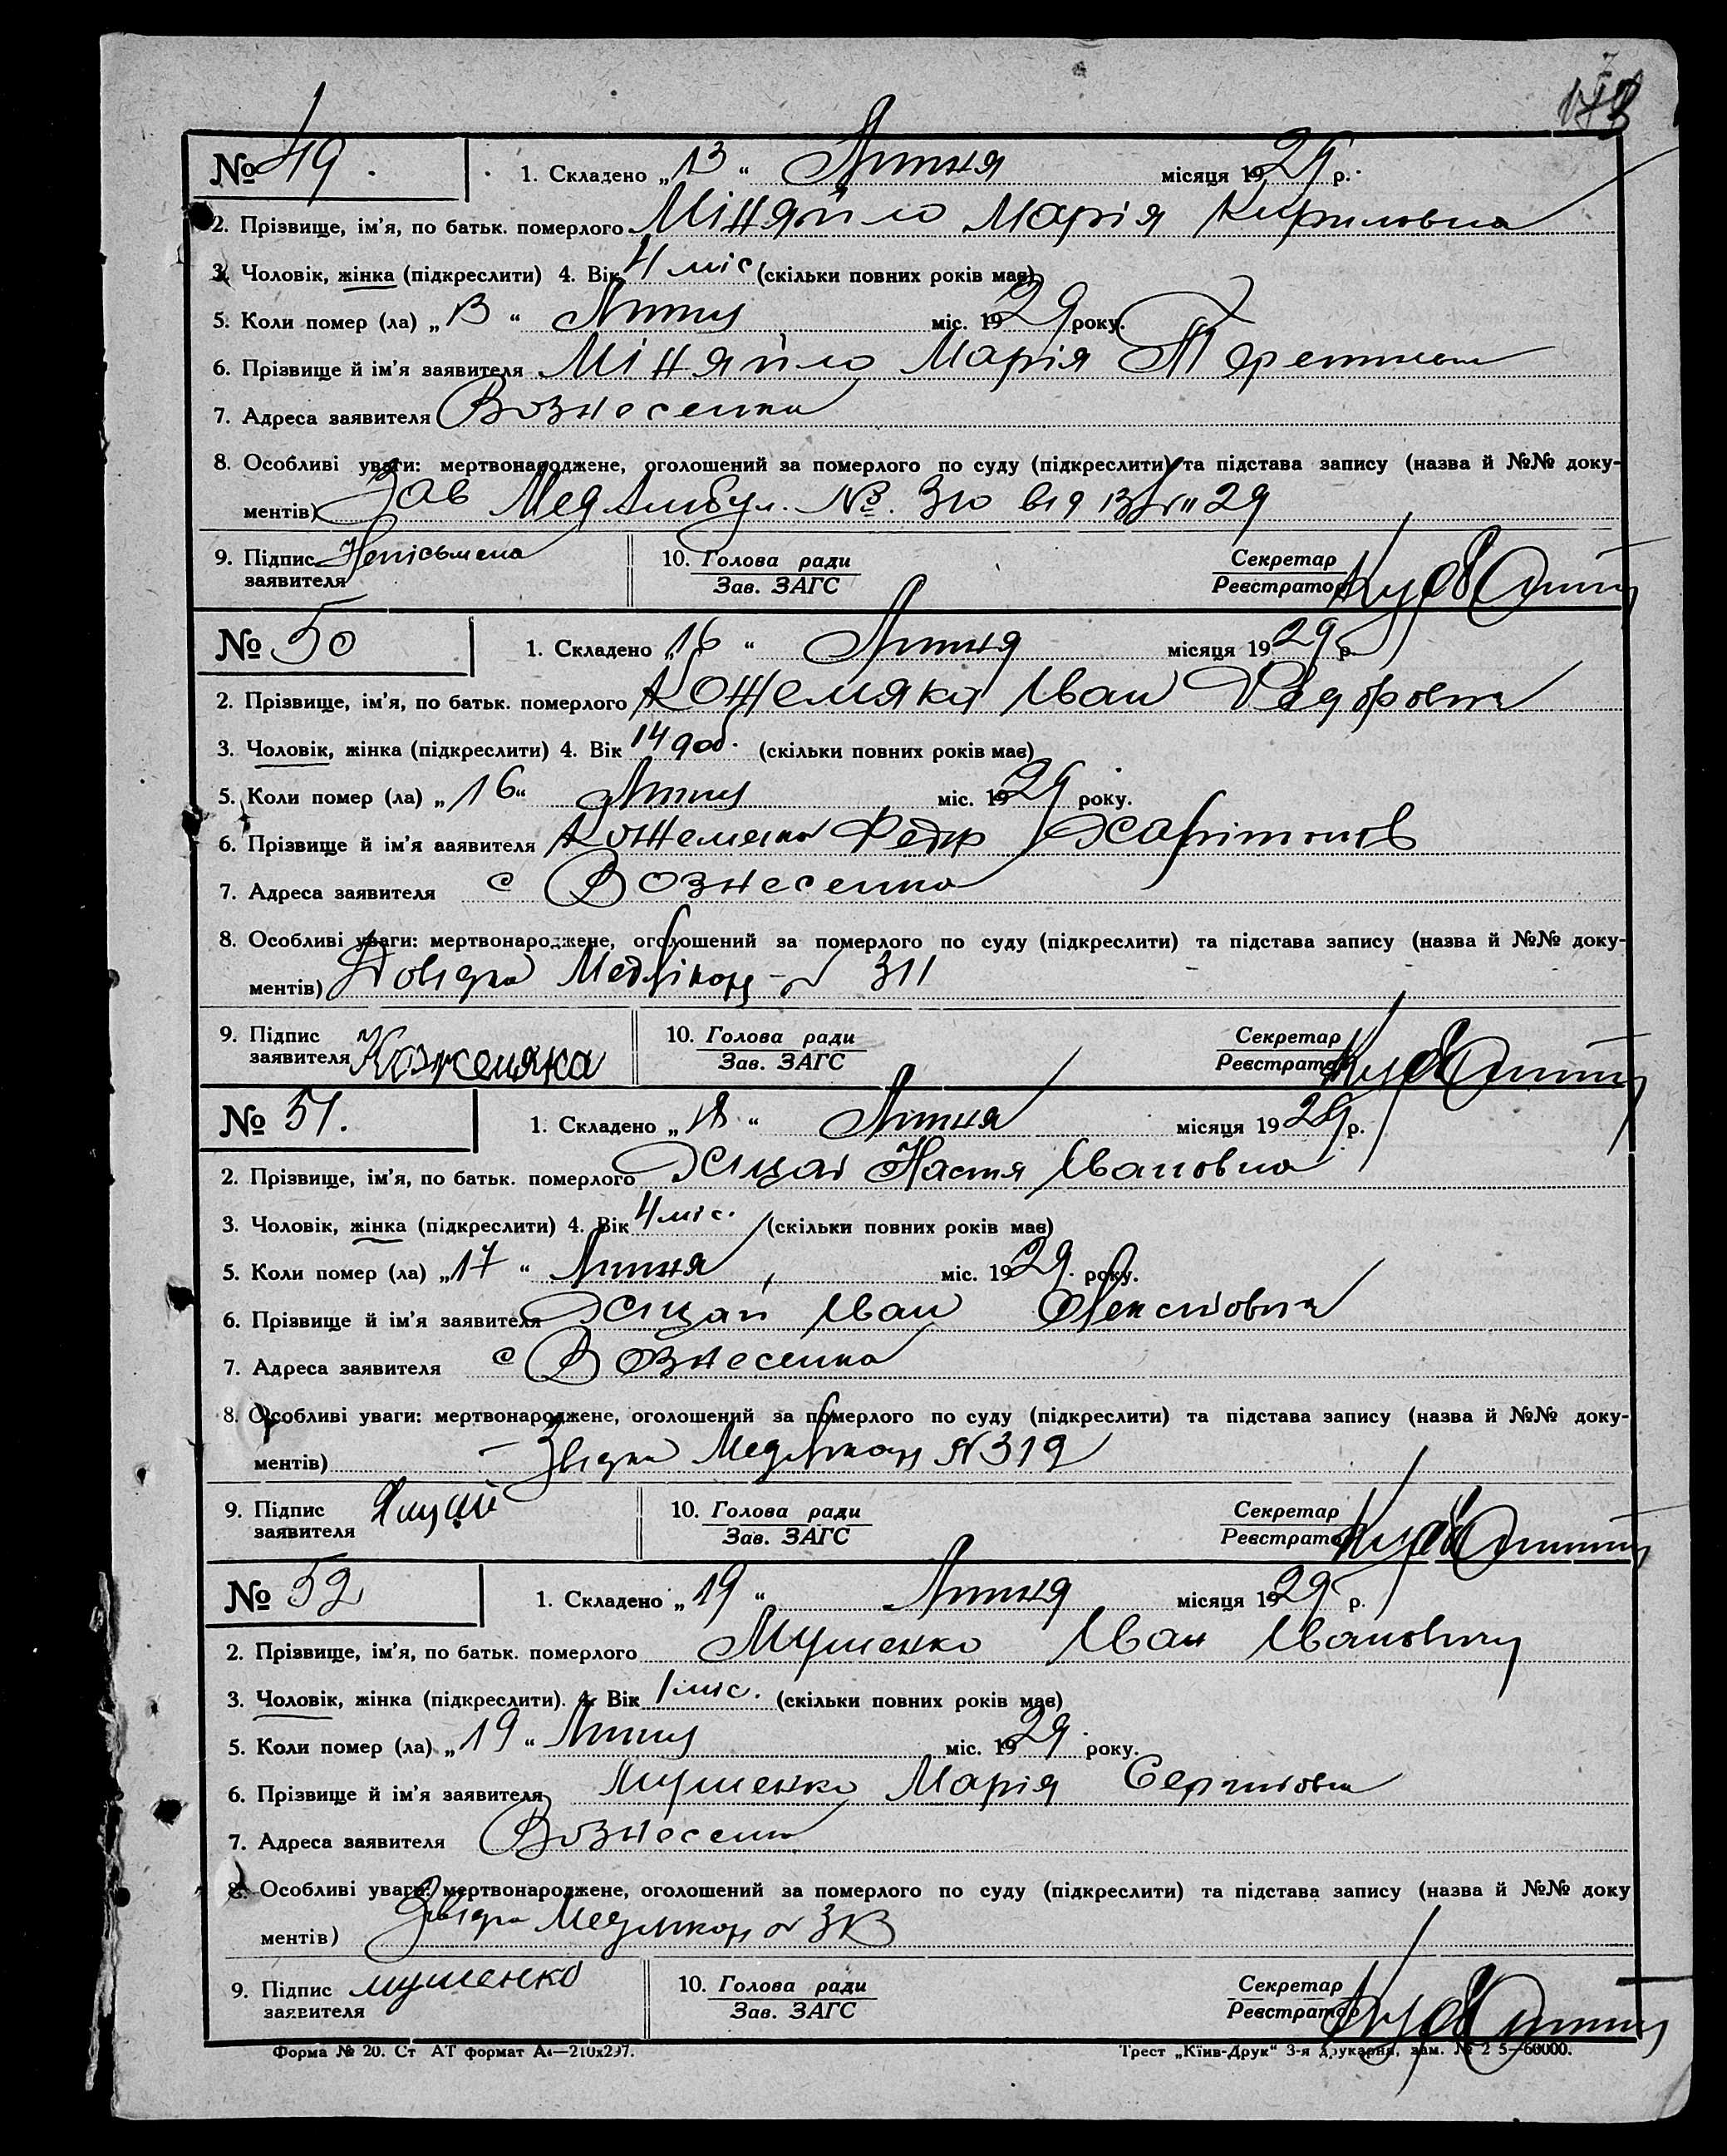 № 49. 1. Складено „13“ Липня місяця 1929 р.
2. Прізвище, ім'я, по батьк. померлого Міняйло Марія Кириловна
3. Чоловік, жінка (підкреслити) 4. Вік 4 міс (скільки повних років має)
5. Коли помер (ла) „13“ Липня міс. 1929 року.
6. Прізвище й ім'я заявителя Міняйло Марія
7. Адреса заявителя Вознесенка
8. Особливі уваги: мертвонароджене, оголошений за померлого по суду (підкреслити) та підстава запису (назва й №№ доку-
ментів) МедАмбул. №. 310 від 29
9. Підпис Неписьмена 10. Голова ради Секретар
заявителя Зав. ЗАГС Реєстратор
№ 50 1. Складено „16“ Липня місяця 1929 р.
2. Прізвище, ім'я, по батьк. померлого Кожемяка Іван Федорович
3. Чоловік, жінка (підкреслити) 4. Вік 14 доб. (скільки повних років має)
5. Коли помер (ла) „16“ Липня міс. 1929 року.
6. Прізвище й ім'я заявителя Кожемяка Федір Харітонов
7. Адреса заявителя с Вознесенка
8. Особливі уваги: мертвонароджене, оголошений за померлого по суду (підкреслити) та підстава запису (назва й №№ доку-
ментів) Довідка 311
9. Підпис 10. Голова ради Секретар
заявителя Кожемяка Зав. ЗАГС Реєстратор
№ 51. 1. Складено „18“ Липня місяця 1929 р.
2. Прізвище, ім'я, по батьк. померлого Настя Івановна
3. Чоловік, жінка (підкреслити) 4. Вік 4 міс. (скільки повних років має)
5. Коли помер (ла) „17“ Липня міс. 1929 року.
6. Прізвище й ім'я заявителя Іван
7. Адреса заявителя с Вознесенка
8. Особливі уваги: мертвонароджене, оголошений за померлого по суду (підкреслити) та підстава запису (назва й №№ доку-
ментів)
9. Підпис 10. Голова ради Секретар
заявителя Зав. ЗАГС Реєстратор
№ 52 1. Складено „19“ Липня місяця 1929 р.
2. Прізвище, ім'я, по батьк. померлого Мушенко Іван Іванович
3. Чоловік, жінка (підкреслити). 4. Вік 1 міс. (скільки повних років має)
5. Коли помер (ла) „19“ Липня міс. 1929 року.
6. Прізвище й ім'я заявителя Мушенко Марія
7. Адреса заявителя Вознесенка
8. Особливі уваги: мертвонароджене, оголошений за померлого по суду (підкреслити) та підстава запису (назва й №№ доку
ментів)
9. Підпис мушенко 10. Голова ради Секретар
заявителя Зав. ЗАГС Реєстратор
Форма № 20. Ст АТ формат А4—210х297. Трест „Київ-Друк“ 3-я друкарня, зам. №